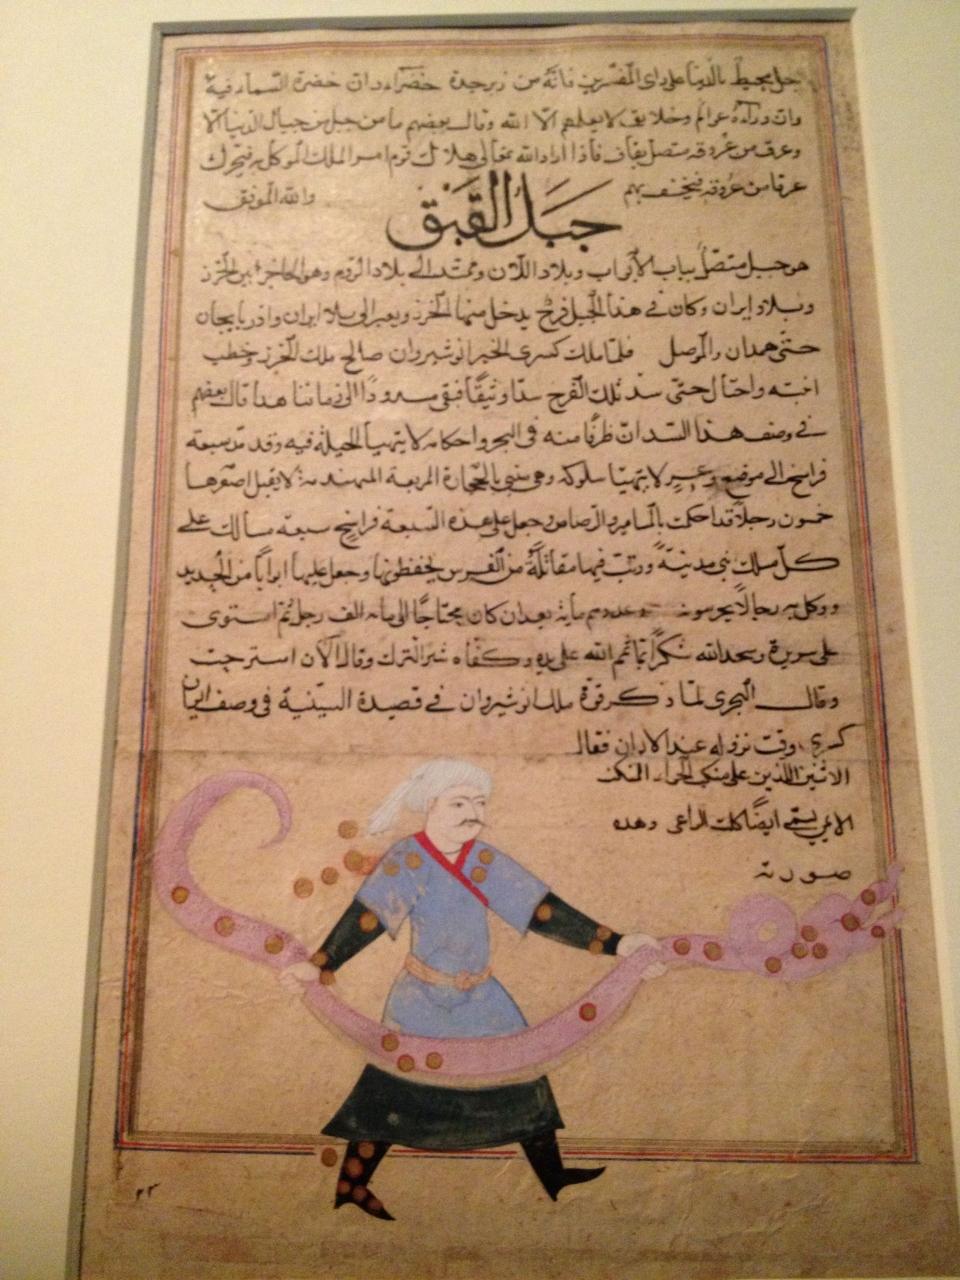 جبل يحيط بالدنيا على راى المفسرين فانه من زبرجدة خضراء وان خضرة السماء فيه
وان وراءه عوالم وخلايق لا يعلمهم الا الله وقال بعضهم ما من جبل من جبال الدنيا الا
وعرق من عروقه متصل بقاف فاذا اراد الله تعالى هلاك قوم امر الملك الموكل به فيحرك
عرقا من عروقه فيخسف بهم والله الموفق
جَبَلُ القَبَق
هو جبل متصل بباب الأبواب وبلاد اللان وممتد الى بلاد الروم وهو الحاجز بين الخزر
وبلاد ايران وكان في هذا الجبل فرج يدخل منها الخزر ويعبر الى بلاد ايران واذربايجان
حتى همدان والموصل فلما ملك كسرى الخير انوشيروان صالح ملك الخزر وخطب
ابنته واحتال حتى سد تلك الفرج سدا وثيقا فبقى مسدودا الى زماننا هذا قال بعضهم
في وصف هذا السد ان طرفا منه في البحر واحكامه لا يتهيأ الحيلة فيه وقد مد سبعة
فراسخ الى موضع وعير لا يتهيا سلوكه وهي مبنى بالحجارة المربعة المهندمة لا يقبل اصغرها
خمسون رجلا قد احكمت بالمسامير والرصاص وجعل على هذه السبعة فراسخ سبعة مسالك على
كل مسلك بنى مدينة ورتب فيها مقاتلة من الفرس يحفظونها وجعل عليها ابوابا من الحديد
ووكل به رجالا يحرسونه وعددهم ماية بعد ان كان محتاجا الى ماية الف رجل ثم استوى
على سريره وسجد لله شكرا بما تمم الله على يده وكفاه شر الترك وقال الآن استرحت
وقال البحترى لما ذكر قوة ملك انوشيروان في قصيدة السينية في وصف ايوان
كسرى وقت نزوله عبد فقال
الاثنين اللذين على منكب
ايضا كلب الراعى وهذه
صورته
٢٣